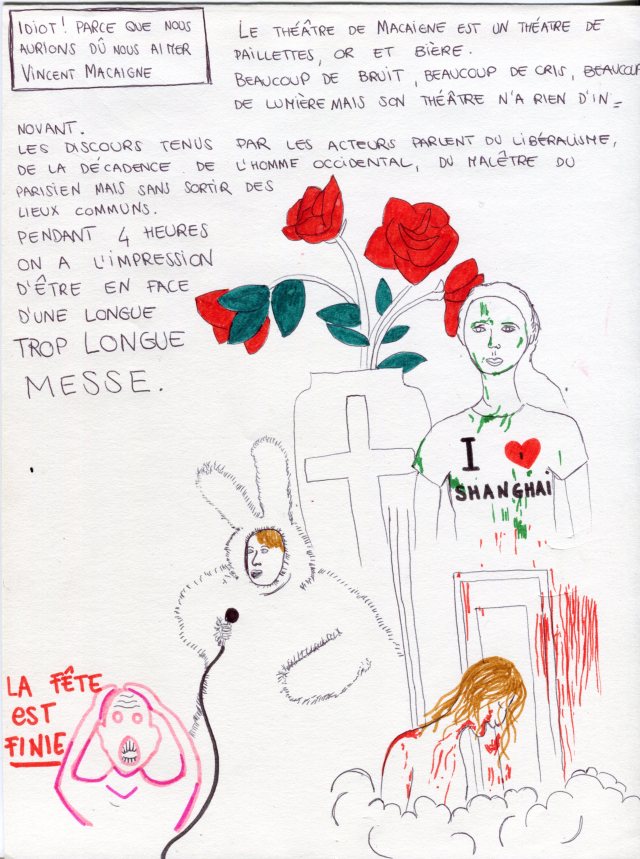 IDIOT! PARCE QUE NOUS
AURIONS DÛ NOUS AIMER
VINCENT MACAIGNE
LE THÉÂTRE DE MACAIGNE EST UN THÉATRE DE
PAILLETTES, OR ET BIÈRE.
BEAUCOUP DE BRUIT, BEAUCOUP DE CRIS, BEAUCOUP
DE LUMIÈRE MAIS SON THÉÂTRE N'A RIEN D'IN=
NOVANT.
LES DISCOURS TENUS PAR LES ACTEURS PARLENT DU LIBÉRALISME,
DE LA DÉCADENCE DE L'HOMME OCCIDENTAL, DU MALÊTRE DU
PARISIEN MAIS SANS SORTIR DES
LIEUX COMMUNS.
PENDANT 4 HEURES
ON A L'IMPRESSION
D'ÊTRE EN FACE
D'UNE LONGUE
TROP LONGUE
MESSE.
I
SHANGHAI
LA FÊTE
EST
FINIE